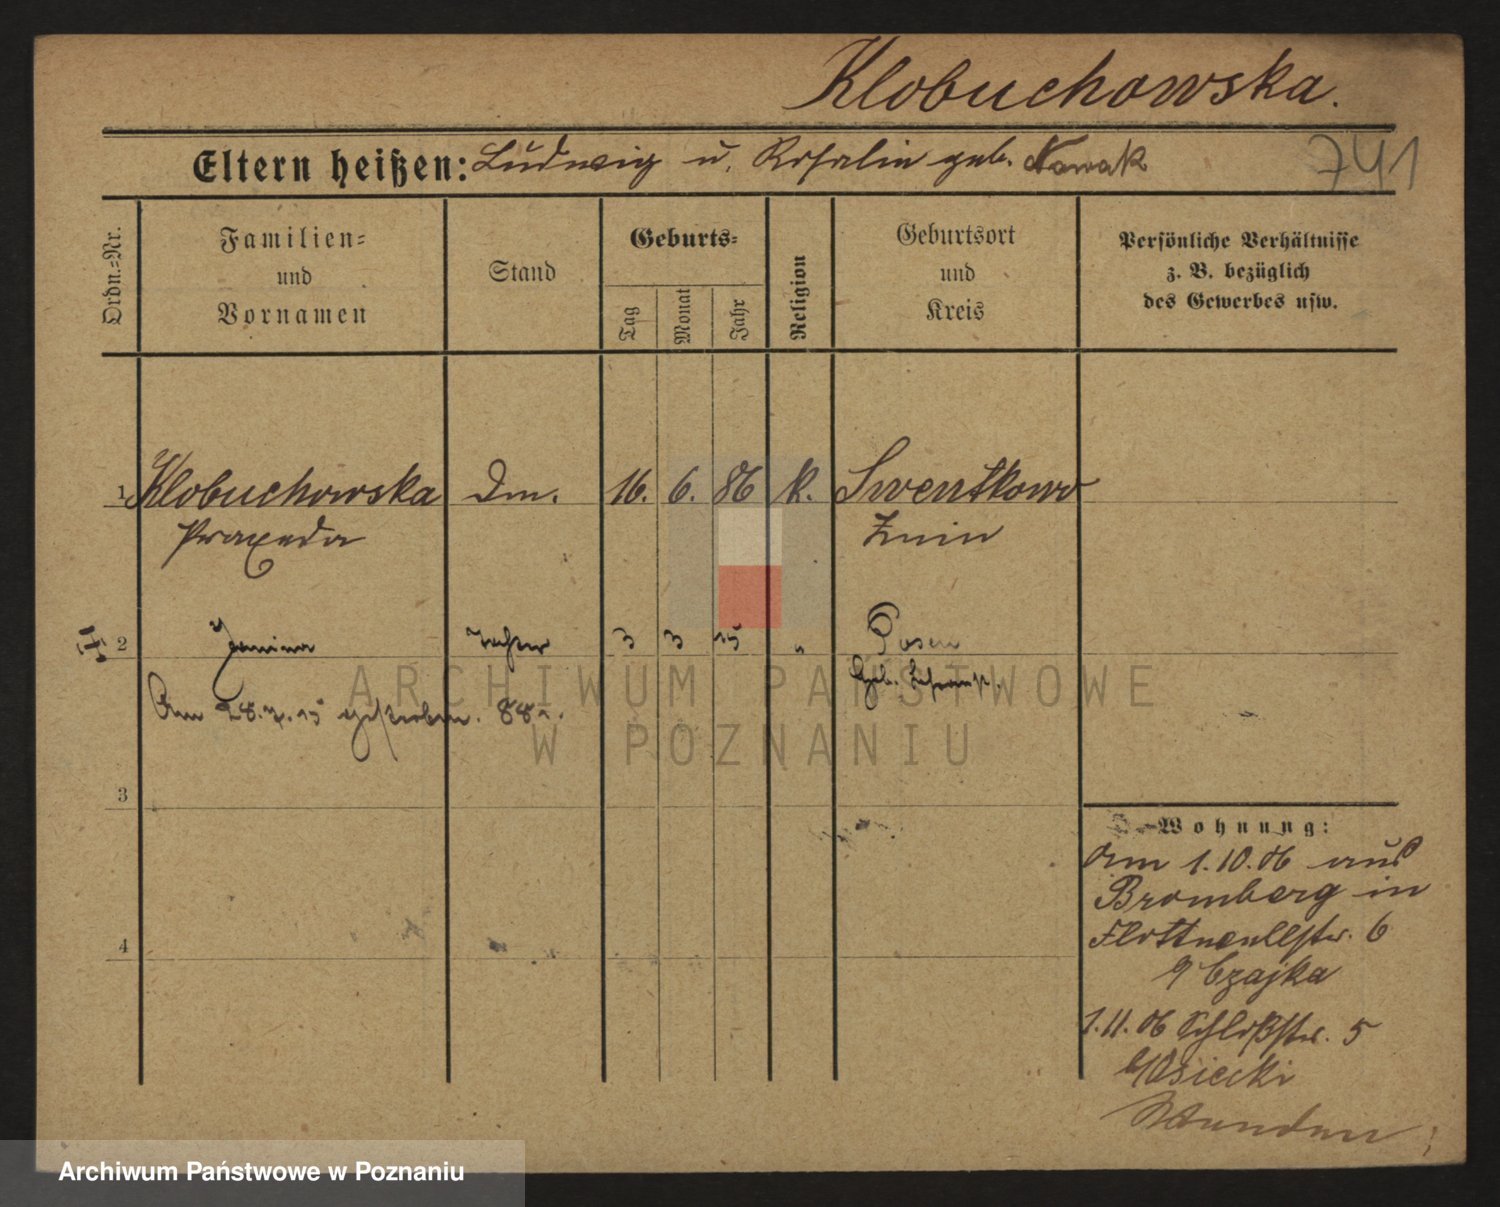 Klobuchowska.
Eltern heißen: Ludwig u. Rosalie geb. Nowak
741
Ordn.=Nr.
Familien=
und
Vornamen
Stand
Geburts=
Tag
Monat
Jahr
Religion
Geburtsort
und
Kreis
Persönliche Verhältnisse
z. B. bezüglich
des Gewerbes usw.
1 Klobuchowska Dm. 16. 6. 86 k. Swentkowo
Praxeda Znin
2 Janina 3 3 15 " Posen
geb.
Am 28.7.15 gestorben.
3
4
Wohnung:
Am 1.10.06 aus
Bromberg in
Flottwellstr. 6
Czajka
1.11.06 Schloßstr. 5
Osiecki
ARCHIWUM PAŃSTWOWE
W POZNANIU
Archiwum Państwowe w Poznaniu